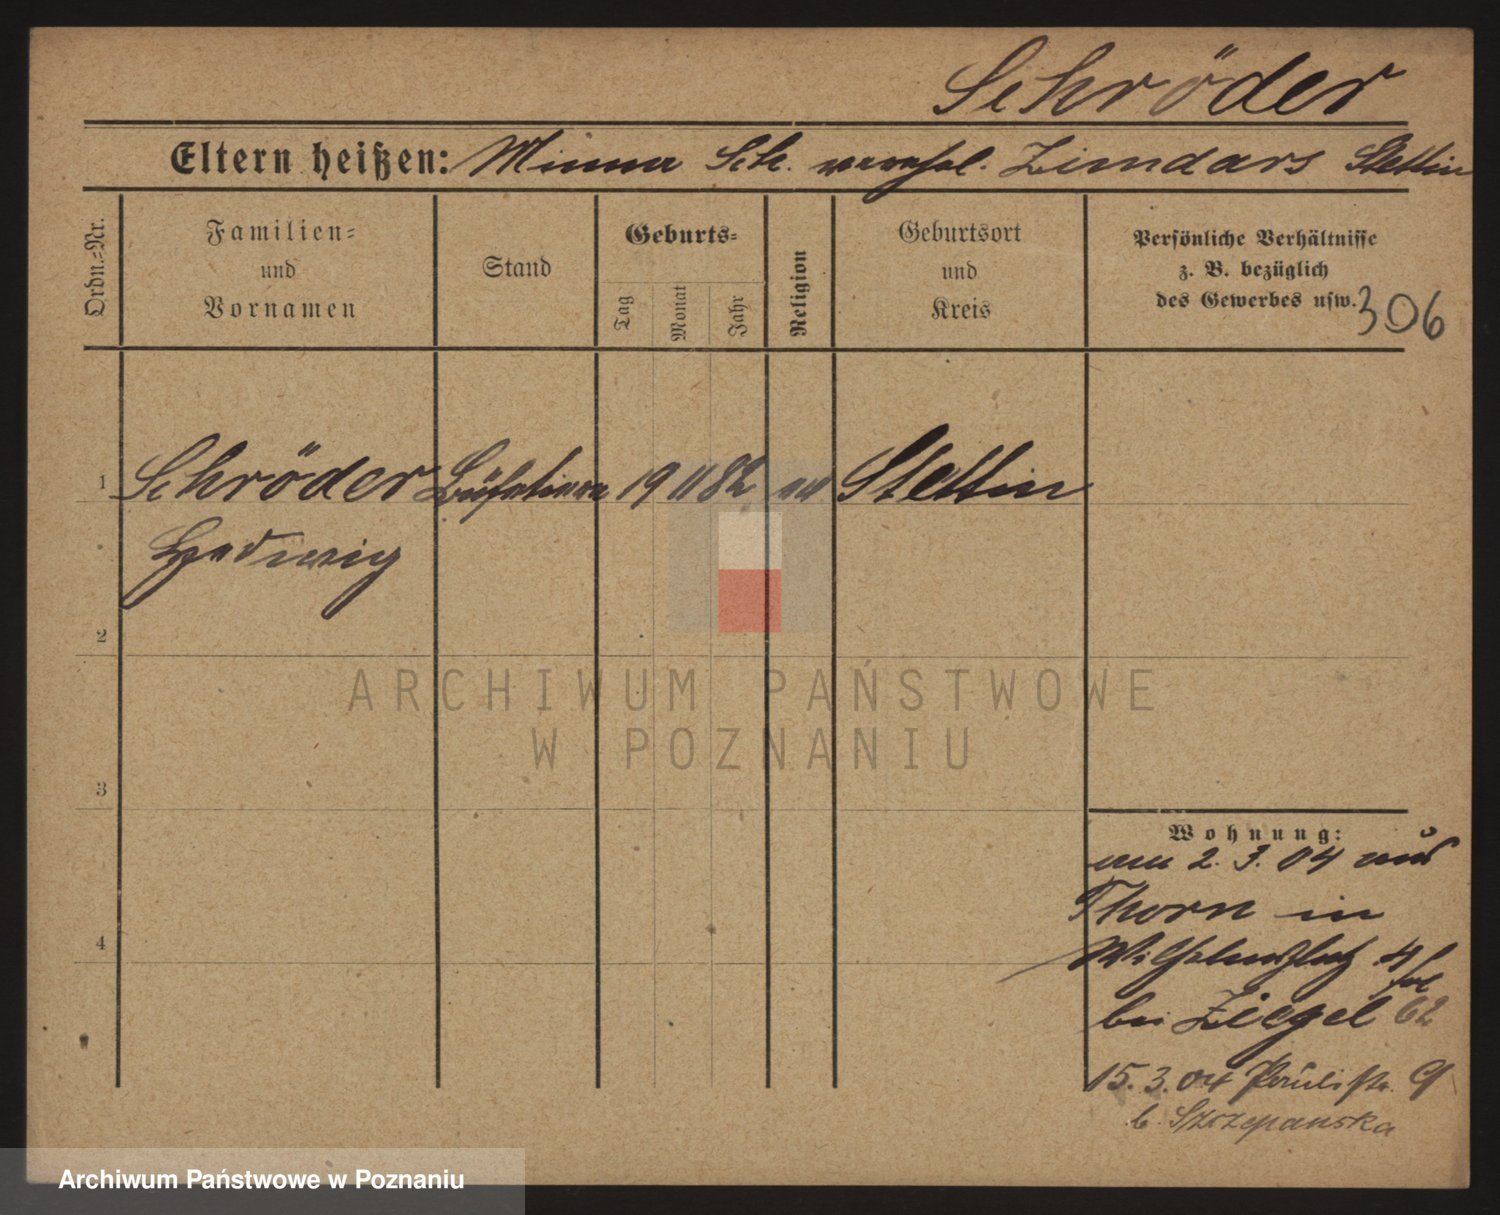 Schröder
Eltern heißen: Minna Sch. verehel. Zimdars Stettin
Ordn.-Nr.
Familien-
und
Vornamen
Stand
Geburts-
Tag
Monat
Jahr
Religion
Geburtsort
und
Kreis
Persönliche Verhältnisse
z. B. bezüglich
des Gewerbes usw.
306
1 Schröder 19 11 82 ev Stettin
Hedwig
2
3
4
Wohnung:
am 2. 3. 04 aus
Thorn in
Wilhelmsplatz 4
bei Ziegel 62
15. 3. 04 Paulistr. 9
b. Szczepanska
ARCHIWUM PAŃSTWOWE
W POZNANIU
Archiwum Państwowe w Poznaniu